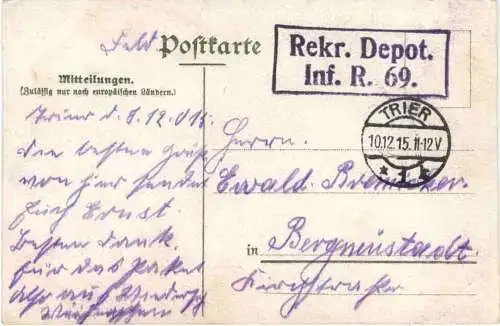 Feld Postkarte
Rekr. Depot.
Inf. R. 69.
Mitteilungen.
(Zulässig nur nach europäischen Ländern.)
TRIER
10.12.15. 11-12 V
* 1 *
Trier d. 8.12.015.
Die besten Grüße
von hier sendet
Euch Ernst.
Besten Dank.
für das Paket
also auf Wiederseh
Weihnachten
Herrn.
Ewald
in Bergneustadt.
Kirchstraße